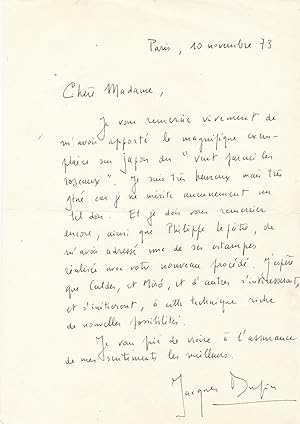 Paris, 10 novembre 73
Chère Madame,
Je vous remercie vivement de
m'avoir apporté le magnifique exem-
plaire sur japon du "vent parmi les
roseaux". Je suis très heureux mais très
gêné car je ne mérite aucunement un
tel don. Et je dois vous remercier
encore, ainsi que Philippe Lepâtre, de
m'avoir adressé une de ses estampes
réalisée avec votre nouveau procédé. J'espère
que Calder, et Miró, et d'autres s'intéresseront,
et s'initieront, à cette technique riche
de nouvelles possibilités.
Je vous prie de croire à l'assurance
de mes sentiments les meilleurs.
Jacques Dupin